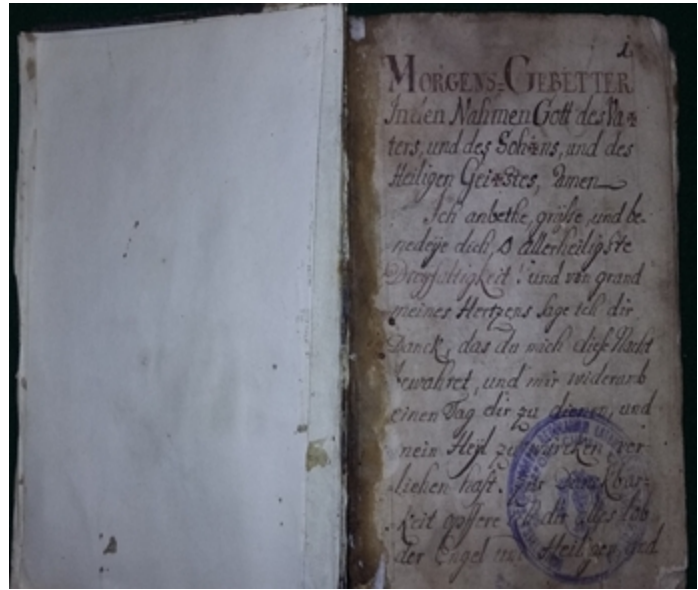 1.
MORGENS=GEBETTER
In den Nahmen Gott des Va✠
ters, und des Soh✠ns, und des
Heiligen Gei✠stes, Amen
Ich anbethe, grüße, und be-
nedeye dich, o allerheiligste
Dreyfaltigkeit! und von grund
meines Hertzens sage ich dir
Danck, das du mich diese Nacht
bewahret, und mir widerumb
einen Tag dir zu dienen, und
mein Heyl zu würcken, ver-
liehen hast. Zur Danckbar-
keit opffere ich dir alles Lob
der Engel und Heiligen, und